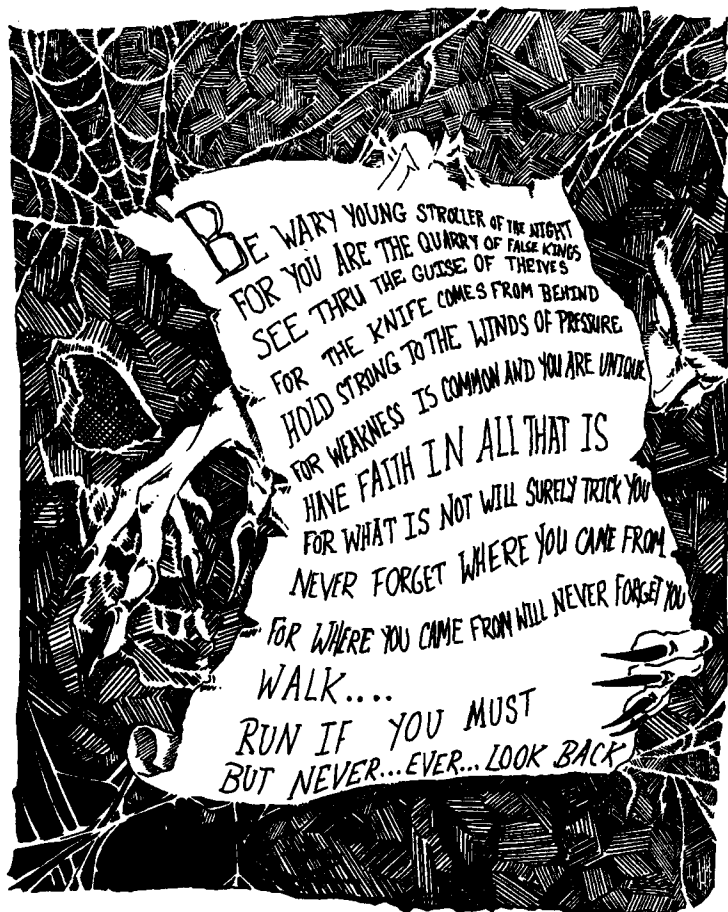 BE WARY YOUNG STROLLER OF THE NIGHT
FOR YOU ARE THE QUARRY OF FALSE KINGS
SEE THRU THE GUISE OF THEIVES
FOR THE KNIFE COMES FROM BEHIND
HOLD STRONG TO THE WINDS OF PRESSURE
FOR WEAKNESS IS COMMON AND YOU ARE UNIQUE
HAVE FAITH IN ALL THAT IS
FOR WHAT IS NOT WILL SURELY TRICK YOU
NEVER FORGET WHERE YOU CAME FROM
FOR WHERE YOU CAME FROM WILL NEVER FORGET YOU
WALK....
RUN IF YOU MUST
BUT NEVER...EVER...LOOK BACK